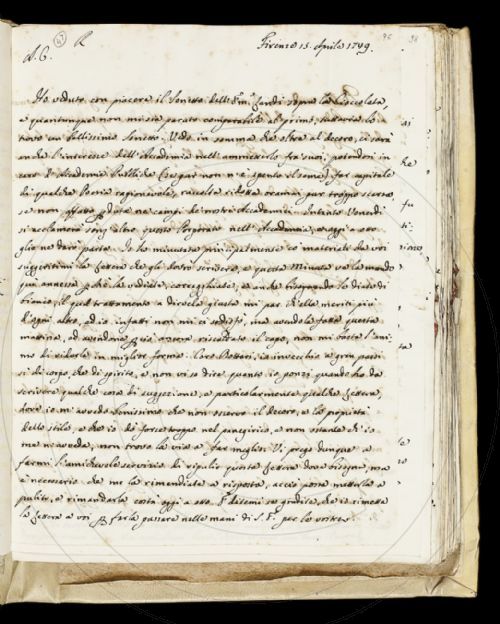 47 R 95 98
A. C. Firenze 15. Aprile 1749.
Ho veduto con piacere il Sonetto dell' Em. Zandi sopra la Cioccolata,
e quantunque non mi sia parato comparabile al primo, tuttavia lo
trovo un bellissimo Sonetto. Vedo in somma che oltre al decoro, ci sarà
anche l'interesse dell' Accademia nell' ammetterlo fra suoi, potendosi in
caso d' Accademia Pubbliche (se pur non n' è spento il seme) far capitale
di qualche Poesia ragionevole, raccolta ridotta oramai pur troppo scarsa
se non affatto ne' campi de' nostri Accademici. Intanto Venerdì
si acclamerà senz' altro questo Porporato nell' Accademia, e oggi a otto
glie ne darò parte. Io ho minutato principalmente co' materiali da voi
suggeritimi la lettera che gli dovrò scrivere, e questa Minuta ve la mando
qui annessa, perchè la vediate, correggiate, e anche bisognando le diate di
bianco, il qual trattamento a dirvela giusta mi par ch' ella meriti più
d'ogni altro, ed io infatti non mi ci sodisfò, ma avendola fatta questa
mattina, ed avendone già ancora riscaldato il capo, non mi basta l'ani-
mo di ridurla in miglior forma. Caro Bottari, io invecchio a gran passi
sì di corpo, che di spirito, e non vi so dire quanto io ponzi quando ho da
scrivere qualche cosa di suggezione, e particolarmente qualche lettera,
dove io m' avvedo benissimo che non osservo il decoro, e la proprietà
dello stile, e che io do forse troppo nel panegirico, e non ostante ch' io
me n' avveda, non trovo la via a far meglio. Vi prego dunque a
farmi l'amichevole servizio di ripulir questa lettera dov' è bisogno, ma
è necessario che me la rimandiate a risposta, acciò possa metterla a
pulito, e rimandarla costà oggi a otto. E ditemi se gradite, che io rimetta
la lettera a voi per farla passare nelle mani di S. E. per le vostre